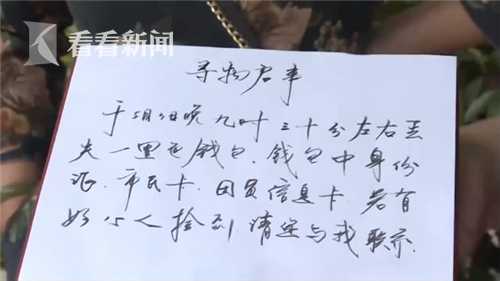 看看新闻
寻物启事
于5月9日晚九时三十分左右丢
失一黑色钱包.钱包中身份
证.市民卡.团员信息卡.若有
好心人捡到请速与我联系.